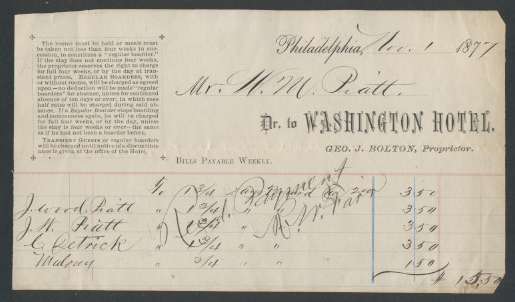 The rooms must be held or meals must
be taken not less than four weeks in suc-
cession, to constitute a "regular boarder."
If the stay does not continue four weeks,
the proprietor reserves the right to charge
for full four weeks, or by the day at tran-
sient prices. REGULAR BOARDERS, with
or without rooms, will be charged as agreed
upon—no deduction will be made "regular
boarders" for absence, unless for continued
absence of ten days or over, in which case
half rates will be charged during said ab-
sence. If a Regular Boarder stops boarding
and commences again, he will be charged
for full four weeks, or by the day, unless
the stay is four weeks or over—the same
as if he had not been a boarder before.
TRANSIENT GUESTS or regular boarders
will be charged until notice of a discontinu-
ance is given at the office of the Hotel.
Philadelphia, Nov. 1 1877
Mr. W. M. Piatt.
Dr. to WASHINGTON HOTEL.
GEO. J. BOLTON, Proprietor.
BILLS PAYABLE WEEKLY.
1 3/4 2.00 3 50
J. Wood Piatt " 1 3/4 " " 3 50
J. W. Piatt " 1 3/4 " " 3 50
C. Detrick " 1 3/4 " " 3 50
Maloney " 3/4 " " " 1 50
Rec. Payment
$ 15.50